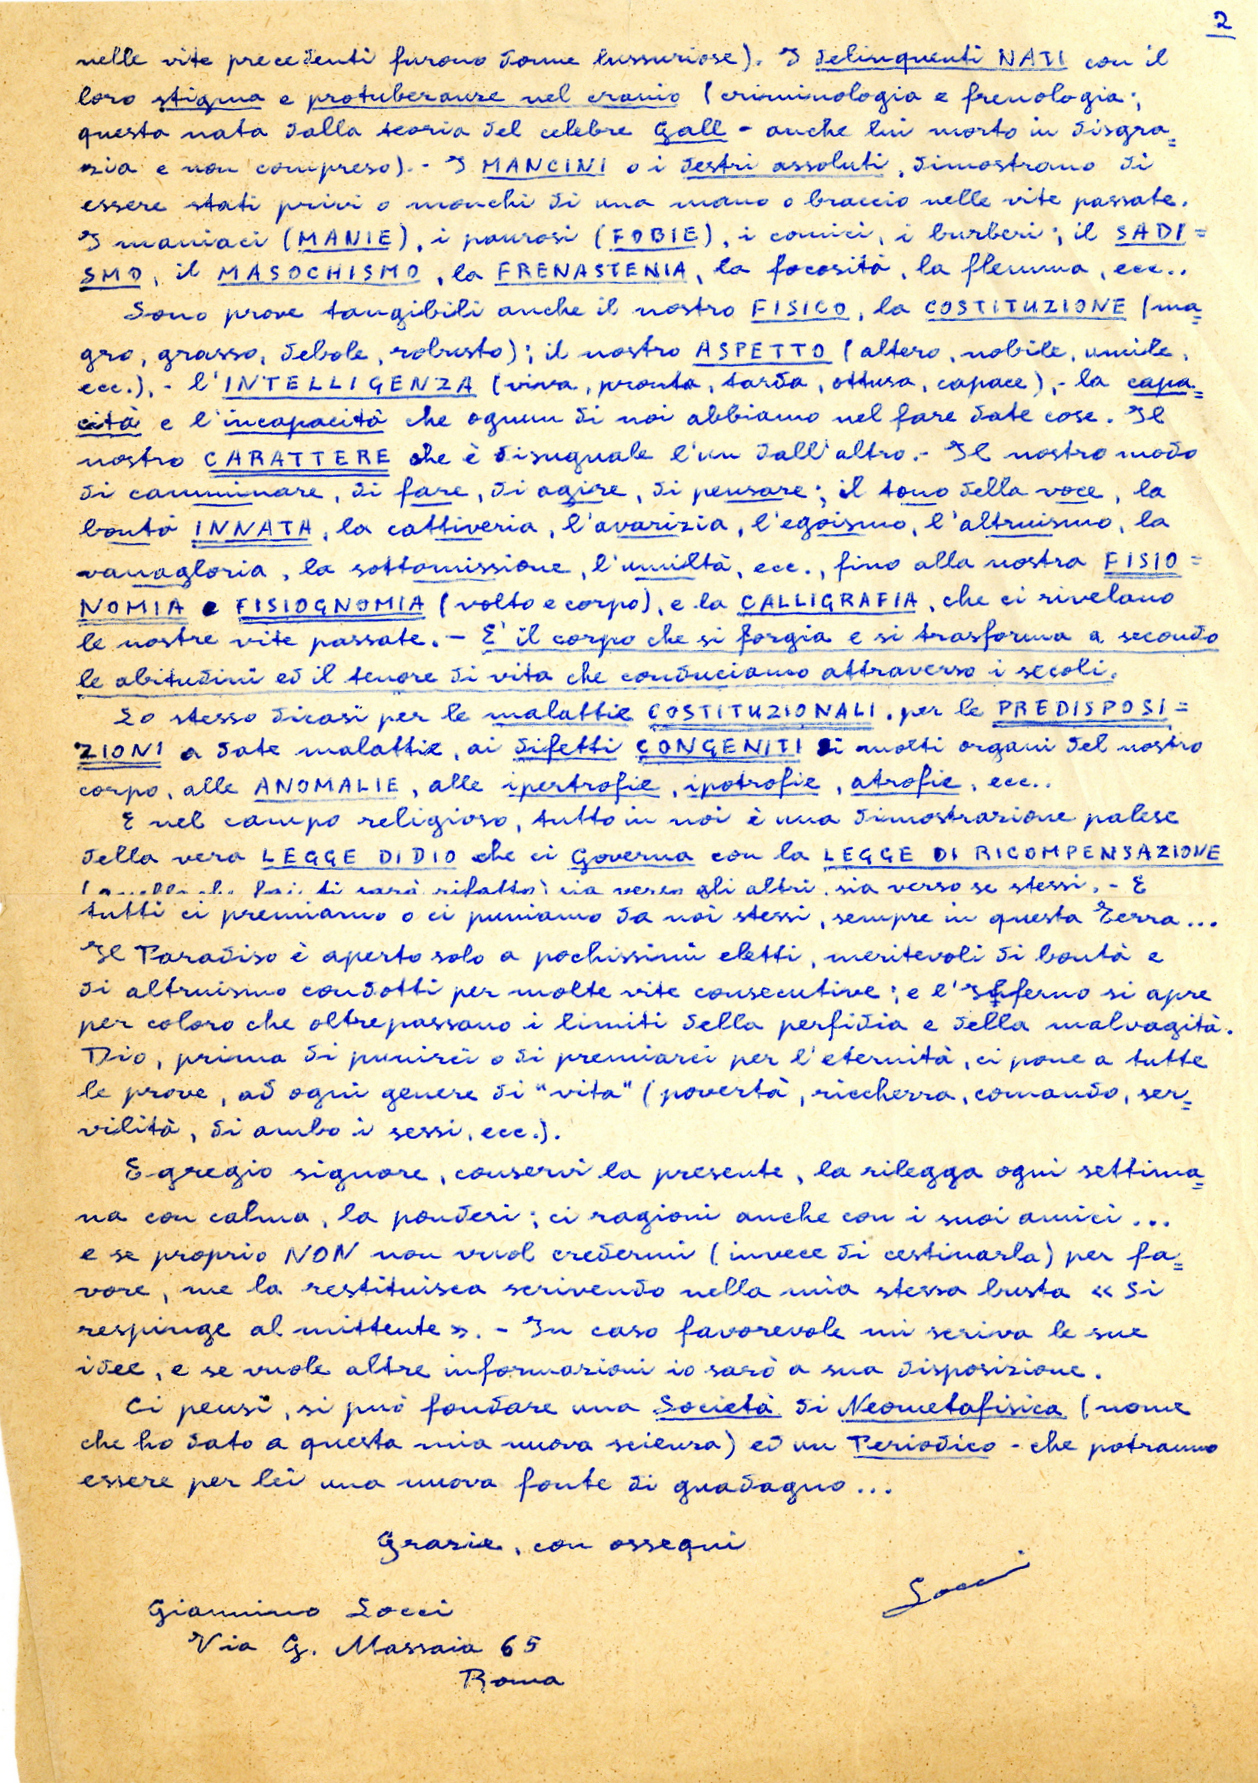 2
nelle vite precedenti furono donne lussuriose). I delinquenti NATI con il
loro stigma e protuberanze nel cranio (criminologia e frenologia;
questa nata dalla teoria del celebre Gall - anche lui morto in disgra=
zia e non compreso). - I MANCINI o i destri assoluti, dimostrano di
essere stati privi o monchi di una mano o braccio nelle vite passate.
I maniaci (MANIE), i paurosi (FOBIE), i comici, i burberi; il SADI=
SMO, il MASOCHISMO, la FRENASTENIA, la focosità, la flemma, ecc..
Sono prove tangibili anche il nostro FISICO, la COSTITUZIONE (ma=
gro, grasso, debole, robusto); il nostro ASPETTO (altero, nobile, umile,
ecc.), - l'INTELLIGENZA (viva, pronta, tarda, ottusa, capace), - la capa=
cità e l'incapacità che ognun di noi abbiamo nel fare date cose. Il
nostro CARATTERE che è disuguale l'un dall'altro. - Il nostro modo
di camminare, di fare, di agire, di pensare; il tono della voce, la
bontà INNATA, la cattiveria, l'avarizia, l'egoismo, l'altruismo, la
vanagloria, la sottomissione, l'umiltà, ecc., fino alla nostra FISIO=
NOMIA e FISIOGNOMIA (volto e corpo), e la CALLIGRAFIA, che ci rivelano
le nostre vite passate. - E' il corpo che si forgia e si trasforma a secondo
le abitudini ed il tenore di vita che conduciamo attraverso i secoli.
Lo stesso dicasi per le malattie COSTITUZIONALI, per le PREDISPOSI=
ZIONI a date malattie, ai difetti CONGENITI di molti organi del nostro
corpo, alle ANOMALIE, alle ipertrofie, ipotrofie, atrofie, ecc..
E nel campo religioso, tutto in noi è una dimostrazione palese
della vera LEGGE DI DIO che ci Governa con la LEGGE DI RICOMPENSAZIONE
(quello che fai, ti sarà rifatto) sia verso gli altri, sia verso se stessi. - E
tutti ci premiamo o ci puniamo da noi stessi, sempre in questa Terra...
Il Paradiso è aperto solo a pochissimi eletti, meritevoli di bontà e
di altruismo condotti per molte vite consecutive; e l'Inferno si apre
per coloro che oltrepassano i limiti della perfidia e della malvagità.
Dio, prima di punirci o di premiarci per l'eternità, ci pone a tutte
le prove, ad ogni genere di "vita" (povertà, ricchezza, comando, ser=
vilità, di ambo i sessi, ecc.).
Egregio signore, conservi la presente, la rilegga ogni settima=
na con calma, la ponderi; ci ragioni anche con i suoi amici...
e se proprio NON non vuol credermi (invece di cestinarla) per fa=
vore, me la restituisca scrivendo nella mia stessa busta « Si
respinge al mittente ». - In caso favorevole mi scriva le sue
idee, e se vuole altre informazioni io sarò a sua disposizione.
Ci pensi, si può fondare una Società di Neometafisica (nome
che ho dato a questa mia nuova scienza) ed un Periodico - che potranno
essere per lei una nuova fonte di guadagno...
Grazie, con ossequi
Socci
Giannino Socci
Via G. Massaia 65
Roma